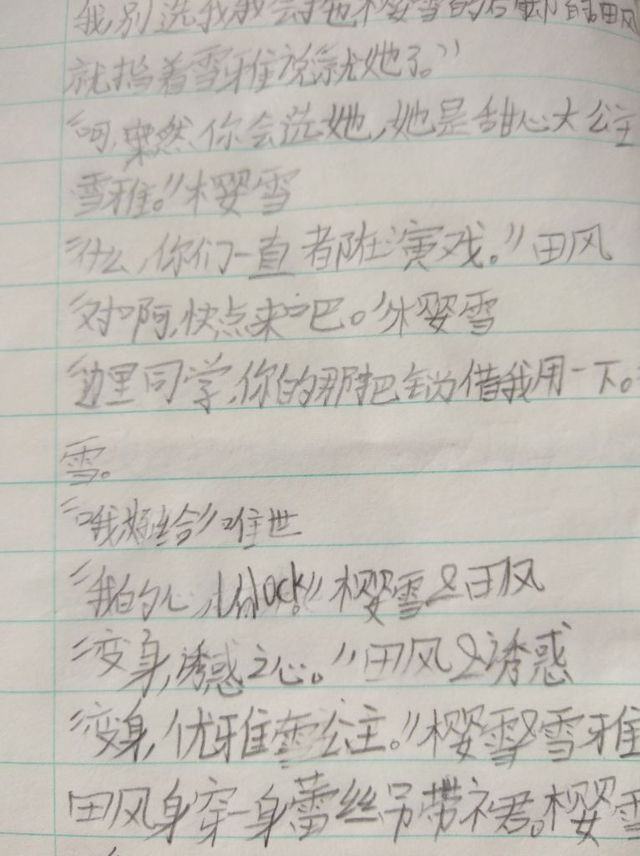 我,别选我我会
就指着雪雅说就她了。”
“呵,果然你会选她,她是甜心大公主
雪雅。”樱雪
“什么,你们一直都在演戏。”田风
“对啊,快点来吧。”樱雪
“边里同学,你的那把钥借我用一下。
雪。
“哦,给”唯世
“我的心,lock!”樱雪&田风
“变身,诱惑之心。”田风&诱惑
“变身,优雅雪公主。”樱雪&雪雅
田风身穿一身蕾丝吊带裙。樱雪